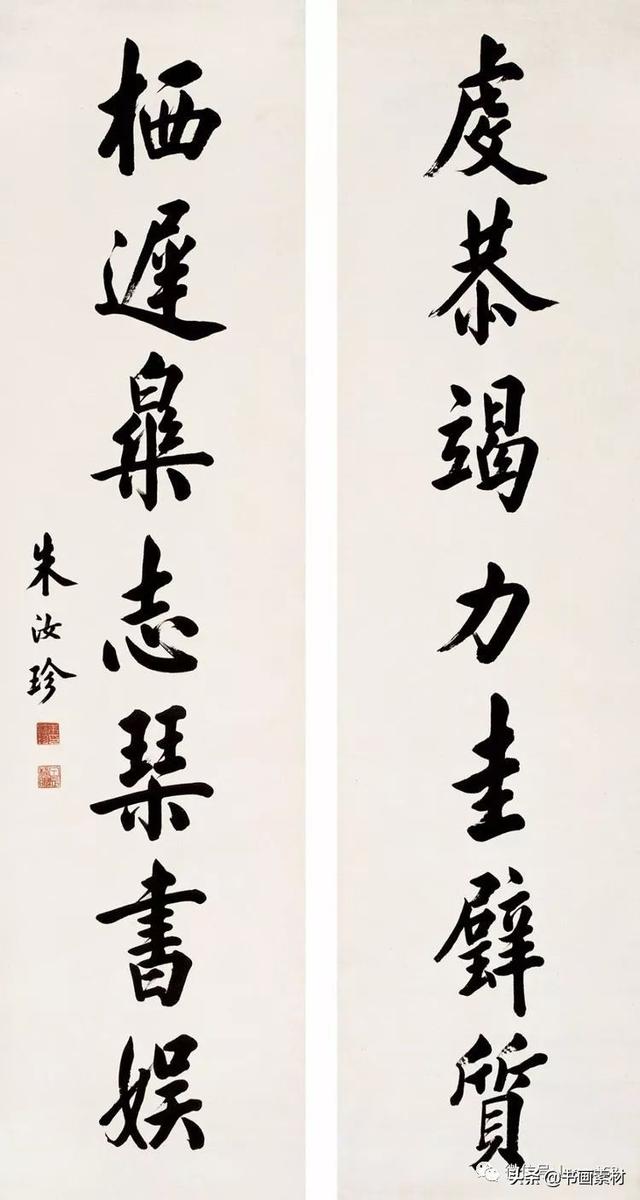 虔恭竭力圭璧質
栖遲樂志琴書娱
朱汝珍
头条 @书画素材